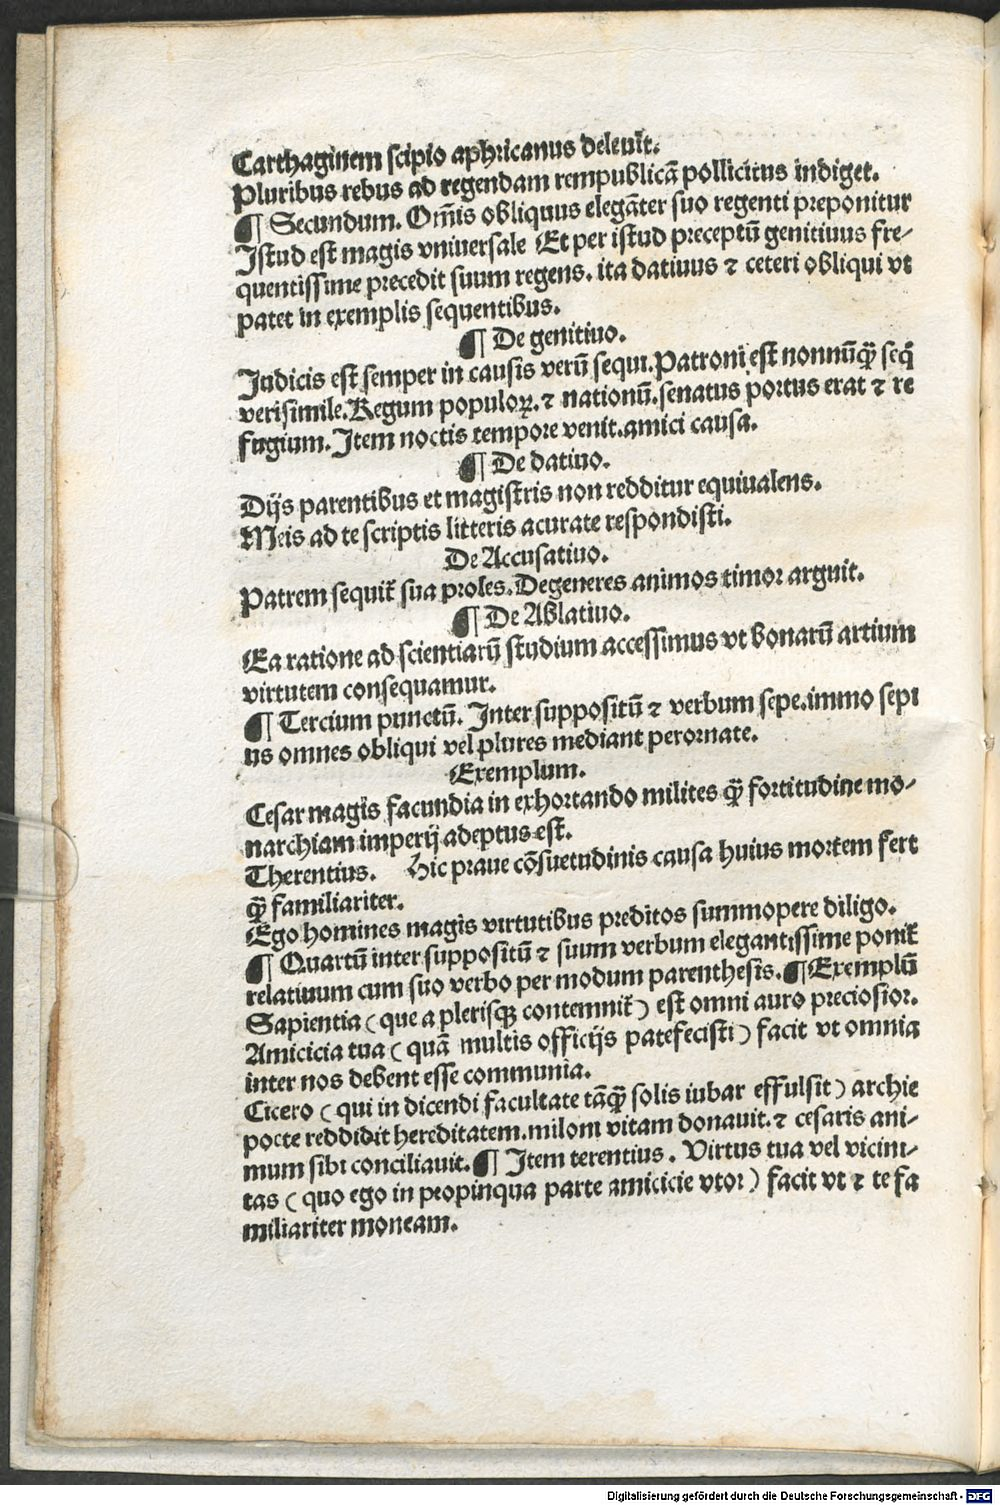 Carthaginem scipio aphricanus deleuit.
Pluribus rebus ad regendam rempublicā pollicitus indiget.
¶ Secundum. Om̄is obliquus elegāter suo regenti preponitur
Istud est magis vniuersale Et per istud preceptū genitiuus fre-
quentissime precedit suum regens. ita datiuus ⁊ ceteri obliqui vt
patet in exemplis sequentibus.
¶ De genitiuo.
Iudicis est semper in causis verū sequi. Patroni est nonnūq̄ȝ seq̄
verisimile. Regum populoꝝ. ⁊ nationū. senatus portus erat ⁊ re
fugium. Item noctis tempore venit. amici causa.
¶ De datiuo.
Dijs parentibus et magistris non redditur equiualens.
Meis ad te scriptis litteris acurate respondisti.
De Accusatiuo.
Patrem sequit̄ sua proles. Degeneres animos timor arguit.
¶ De Ablatiuo.
Ea ratione ad scientiarū studium accessimus vt bonarū artium
virtutem consequamur.
¶ Tercium punctū. Inter suppositū ⁊ verbum sepe. immo sepi
us omnes obliqui vel plures mediant perornate.
Exemplum.
Cesar magis facundia in exhortando milites q̄ȝ fortitudine mo-
narchiam imperij adeptus est.
Therentius. Hic praue cōsuetudinis causa huius mortem fert
q̄ȝ familiariter.
Ego homines magis virtutibus preditos summopere diligo.
¶ Quartū inter suppositū ⁊ suum verbum elegantissime ponit̄
relatiuum cum suo verbo per modum parenthesis. ¶ Exemplū
Sapientia (que a plerisqȝ contemnit̄) est omni auro preciosior.
Amicicia tua (quā multis officijs patefecisti) facit vt omnia
inter nos debent esse communia.
Cicero (qui in dicendi facultate tāq̄ȝ solis iubar effulsit) archie
pocte reddidit hereditatem. miloni vitam donauit. ⁊ cesaris ani-
mum sibi conciliauit. ¶ Item terentius. Virtus tua vel vicini-
tas (quo ego in propinqua parte amicicie vtor) facit vt ⁊ te fa
miliariter moneam.
Digitalisierung gefördert durch die Deutsche Forschungsgemeinschaft - DFG